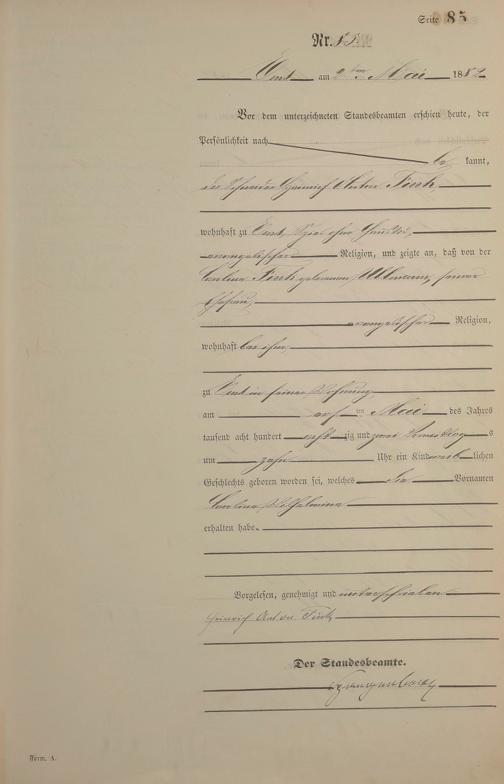 Seite 85
Nr.
am 2ten Mai 1882
Vor dem unterzeichneten Standesbeamten erschien heute, der
Persönlichkeit nach
be kannt,
der Schneider Heinrich Anton Fink
wohnhaft zu
evangelischer Religion, und zeigte an, daß von der
Carolina Fink geborenen Ullmann, seiner
Ehefrau,
evangelischer Religion,
wohnhaft bei ihm,
zu in seiner Wohnung
am ersten Mai des Jahres
tausend acht hundert acht zig und zwei Vormittag s
um zehn Uhr ein Kind weib lichen
Geschlechts geboren worden sei, welches die Vornamen
Carolina Wilhelmina
erhalten habe.
Vorgelesen, genehmigt und unterschrieben
Heinrich Anton Fink
Der Standesbeamte.
Form. A.